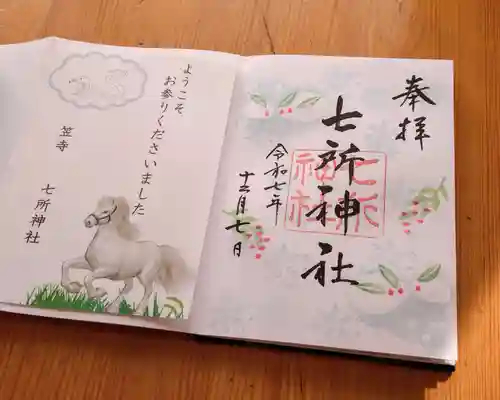 奉拝
七所神社
七所神社
令和七年
十二月七日
ようこそ
お参りくださいました
笠寺 七所神社